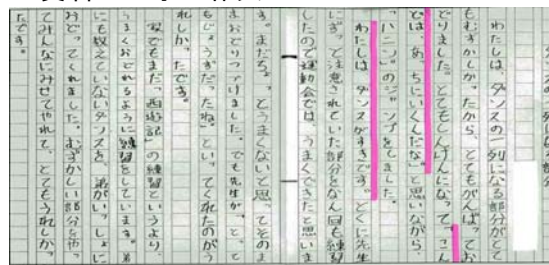 わたしは、ダンスの一列になる部分がとて
もむずかしかったから、とてもがんばってお
どりました。とてもしんけんになって、「さん
ぴは、あっちにいくんだな」と思いながら、
「ハニッ」のジャンプをしました。
わたしは、ダンスがすきです。とくに先生
にずっと注意されていた部分をなん回も練習
したので運動会では、うまくできたと思いま
す。まだちょっとうまくないと思ってそのま
まおどりつづけました。でも先生が、「とって
もじょうずだったね」といってくれたのがう
れしかったです。
家でもまだ「西遊記」の練習というより、
うまくおどれるように練習をしています。弟
にも教えていないダンスを、弟がいっしょに
おどってくれました。むずかしい部分を作っ
てみんなにみせてやれて、とてもうれしかっ
たです。